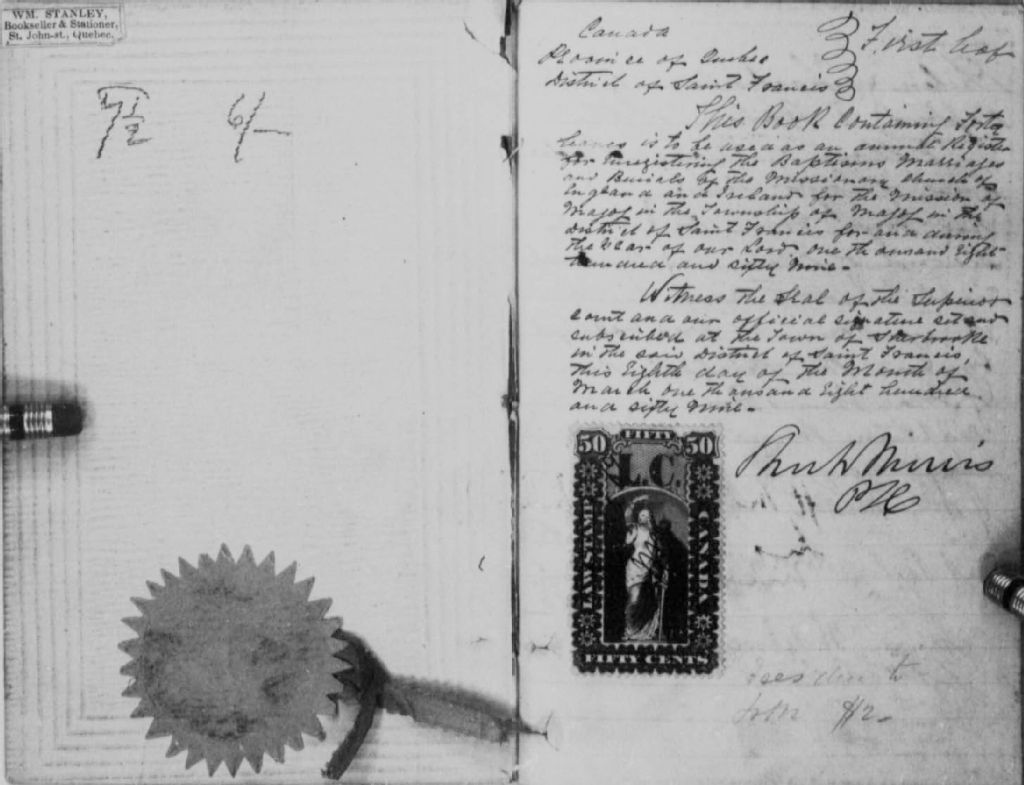 WM. STANLEY,
Bookseller & Stationer,
St. John-st., Quebec.
7 1/2 6/-
Canada
Province of Quebec
District of Saint Francis
First leaf
This Book Containing Forty
leaves is to be used as an annual Register
for enregistering the Baptisms Marriages
and Burials by the Missionary Church of
England and Ireland for the Mission of
Magog in the Township of Magog in the
District of Saint Francis for and during
the Year of our Lord one thousand Eight
hundred and sixty nine -
Witness the Seal of the Superior
Court and our official signature set and
subscribed at the Town of Sherbrooke
in the said District of Saint Francis,
this Eighth day of the Month of
March one thousand Eight hundred
and sixty nine -
50 FIFTY 50
L.C.
LAW STAMP
CANADA
FIFTY CENTS
Short & Morris
PSC
$12-